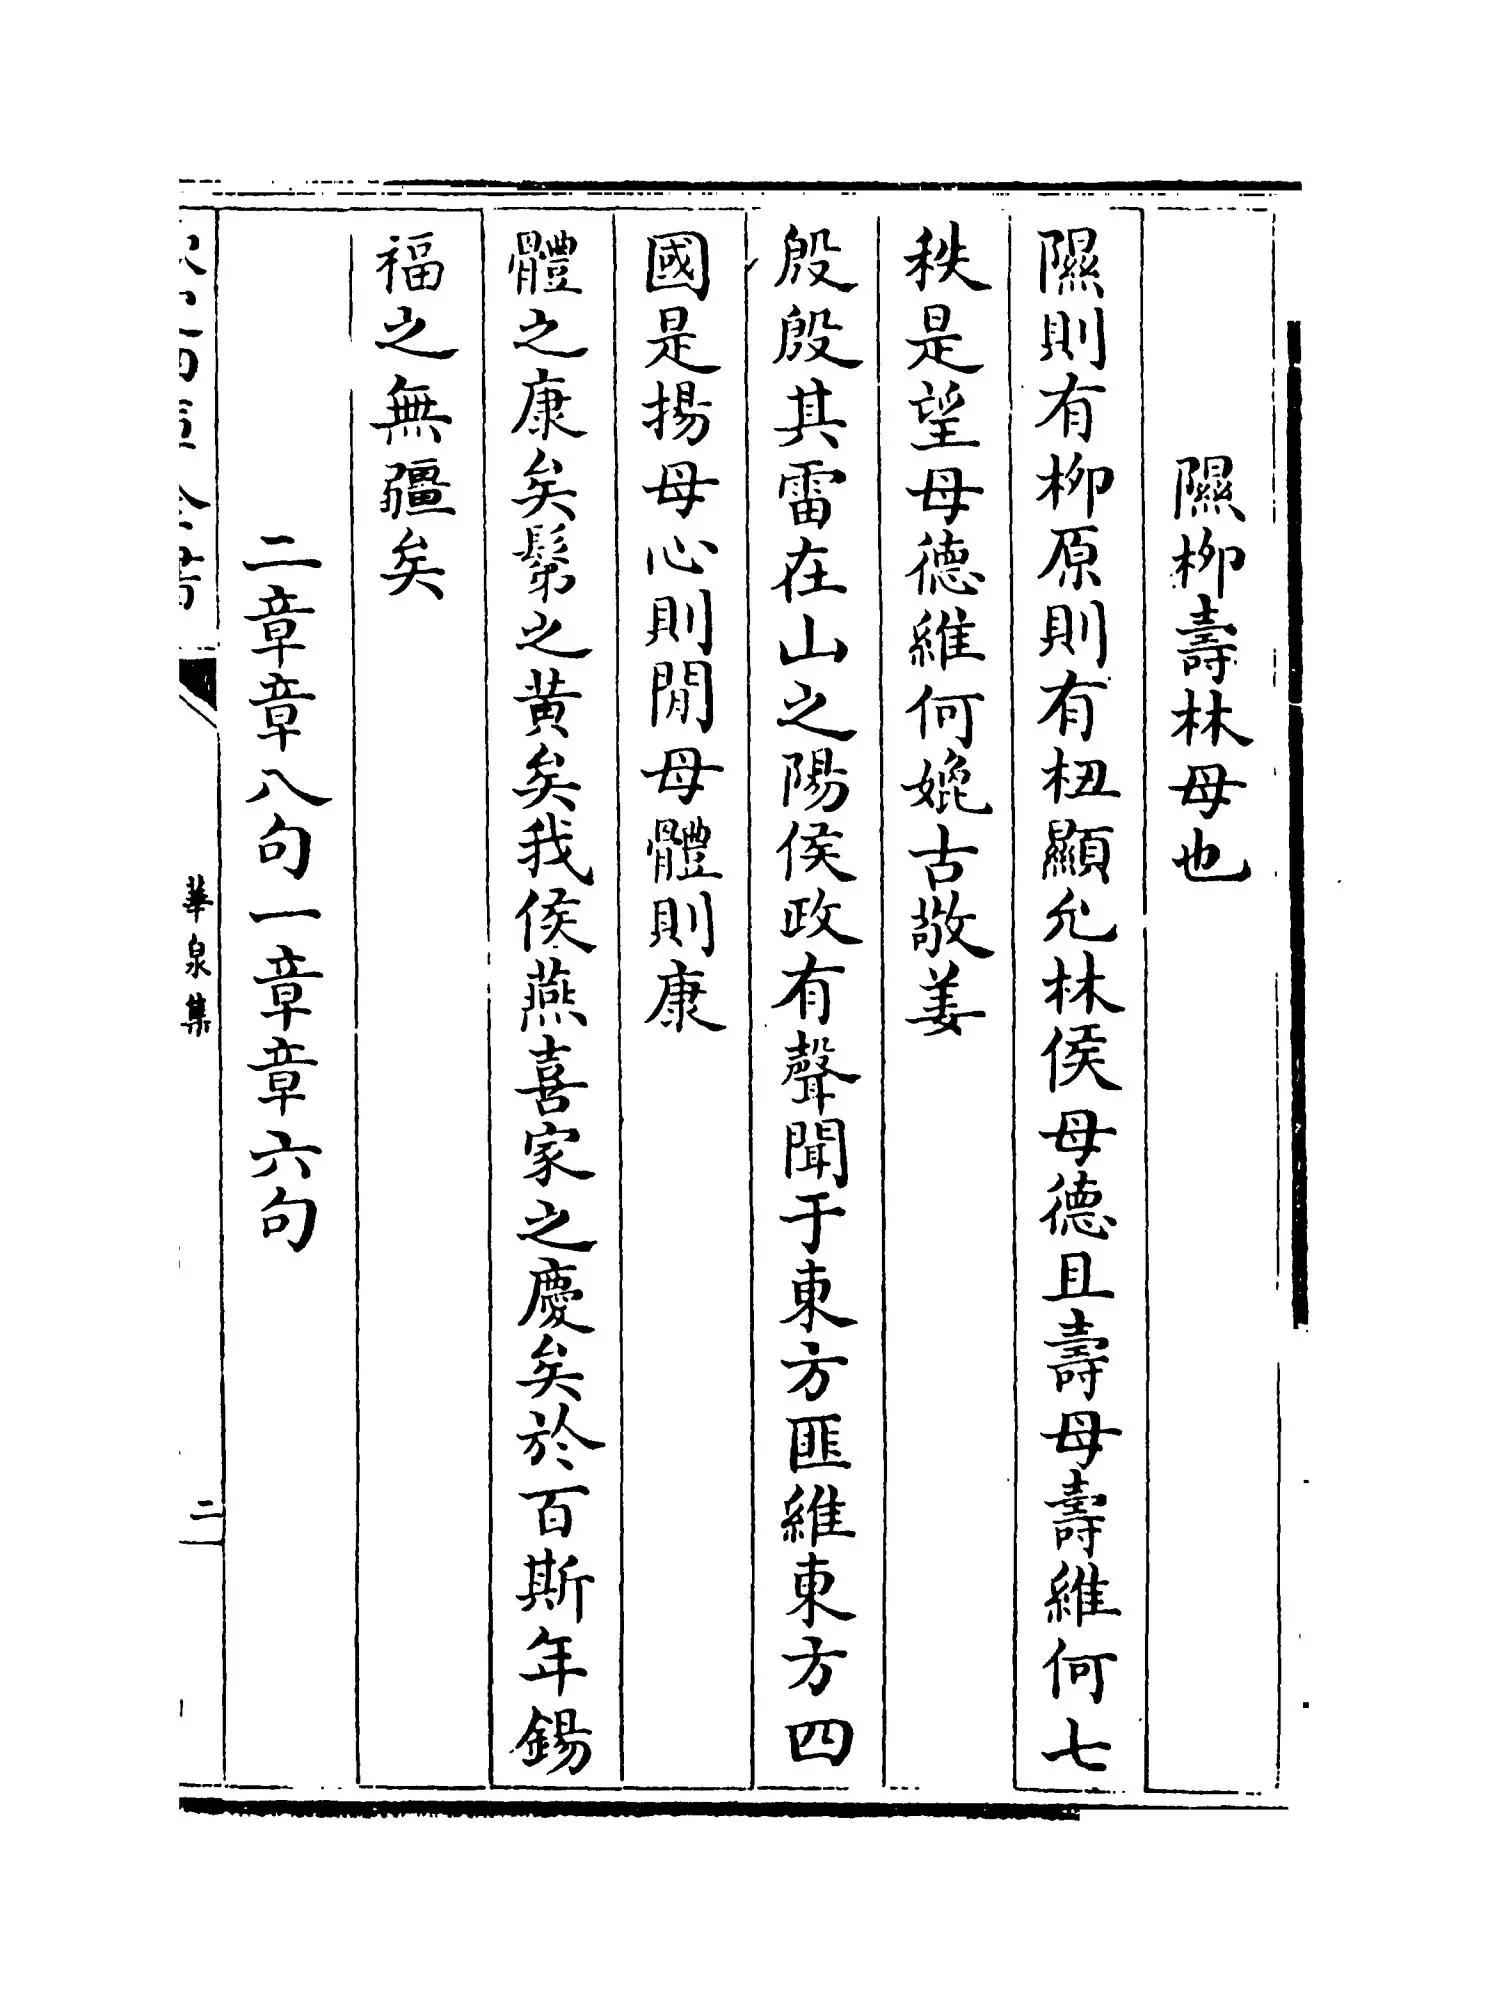 隰柳壽林母也
隰則有柳原則有杻顯允林侯母德且壽母壽維何七
秩是望母德維何媲古敬姜
殷殷其雷在山之陽侯政有聲聞于東方匪維東方四
國是揚母心則閒母體則康
體之康矣髴之黄矣我侯燕喜家之慶矣於百斯年錫
福之無疆矣
二章章八句一章章六句
華泉集
二